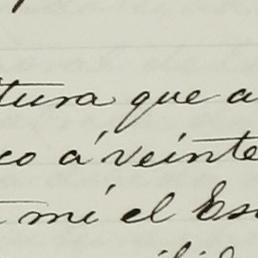 tura que a
co á veinte
mí el Es